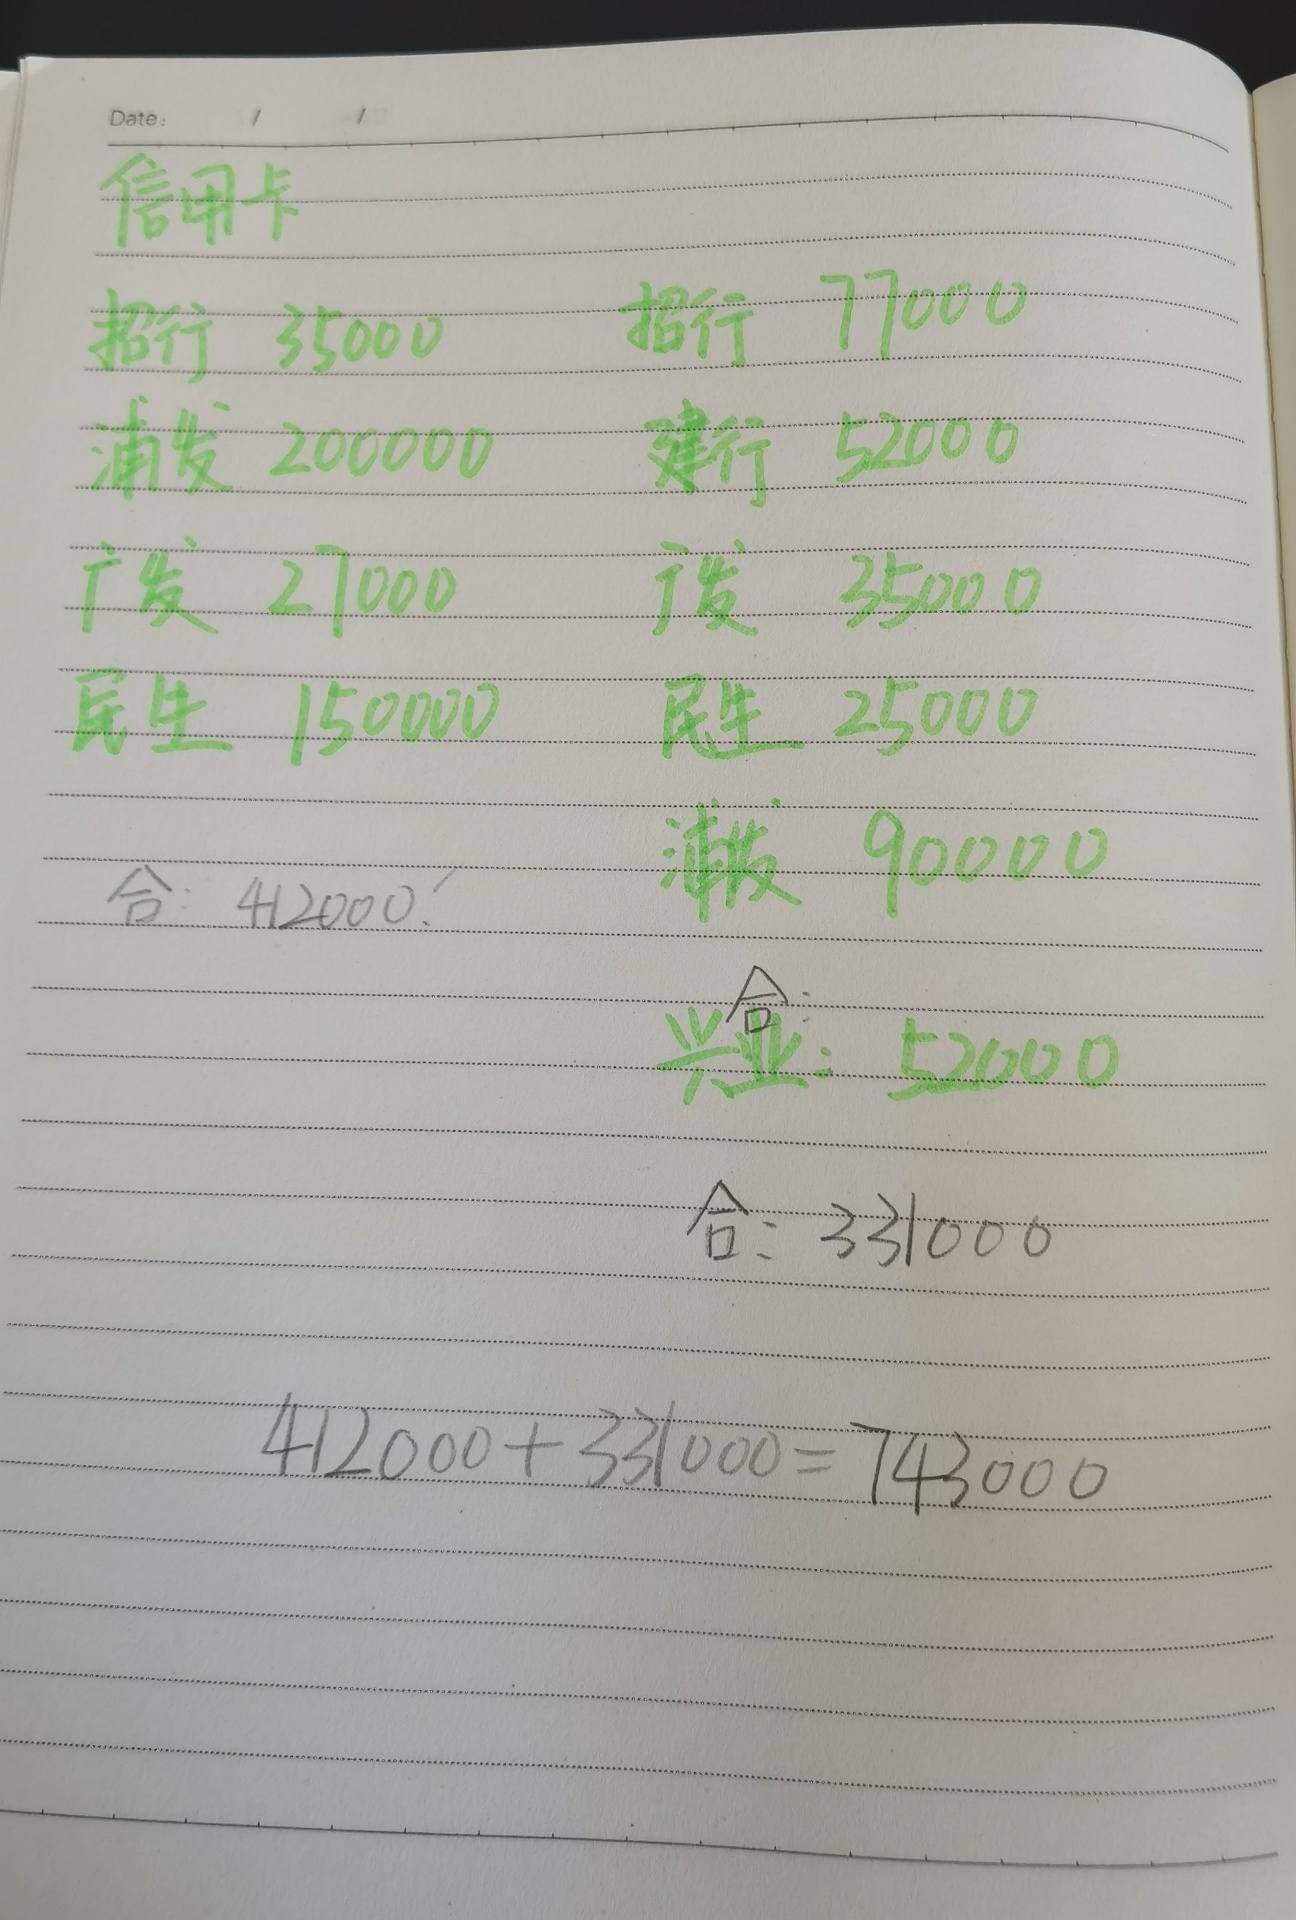 Date: / /
信用卡
招行 35000 招行 77000
浦发 200000 建行 52000
广发 27000 广发 35000
民生 150000 民生 25000
浦发 90000
合: 412000!
合:
兴业: 52000
合: 331000
412000+331000=743000